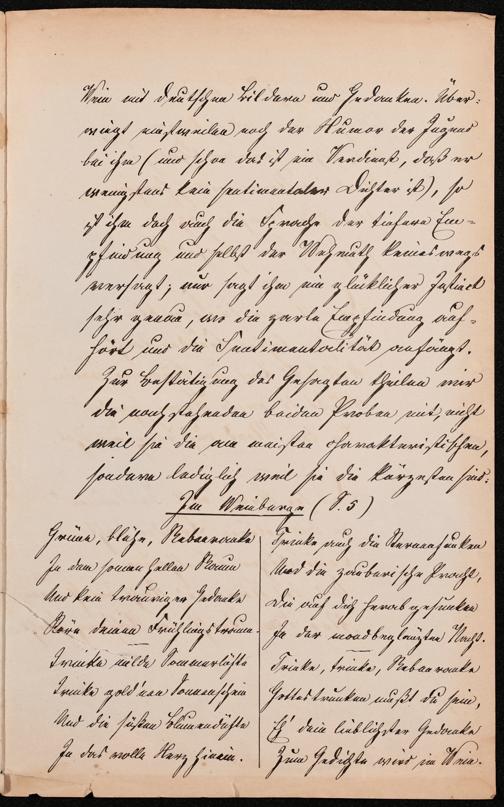 Wein mit deutschen Bildern und Gedanken. Über-
wiegt einstweilen noch der Humor der Jugend
bei ihm (und schon das ist ein Verdienst, daß er
wenigstens kein sentimentaler Dichter ist), so
ist ihm doch auch die Sprache der tiefern Em-
pfindung und selbst der Wehmuth keineswegs
versagt; nur sagt ihm ein glücklicher Instinct
sehr genau, wo die zarte Empfindung auf-
hört und die Sentimentalität anfängt.
Zur Bestätigung des Gesagten theilen wir
die nachstehenden beiden Proben mit, nicht
weil sie die am meisten charakteristischen,
sondern lediglich weil sie die kürzesten sind:
Im Weinberge (S. 5)
Grüne, blühe, Rebenranke
In dem sonnenhellen Raum
Und kein trauriger Gedanke
Störe deinen Frühlingstraum.
Trinke milde Sommerlüfte
Trinke gold'nen Sonnenschein
Und die süßen Blumendüfte
In das volle Herz hinein.
Trinke auch die Sternenfunken
Und die zauberische Pracht,
Die auf dich herabgesunken
In der mondbeglänzten Nacht.
Trinke, trinke, Rebenranke
Gottestrunken mußt du sein,
Eh' dein lieblichster Gedanke
Zum Gedichte wird im Wein.